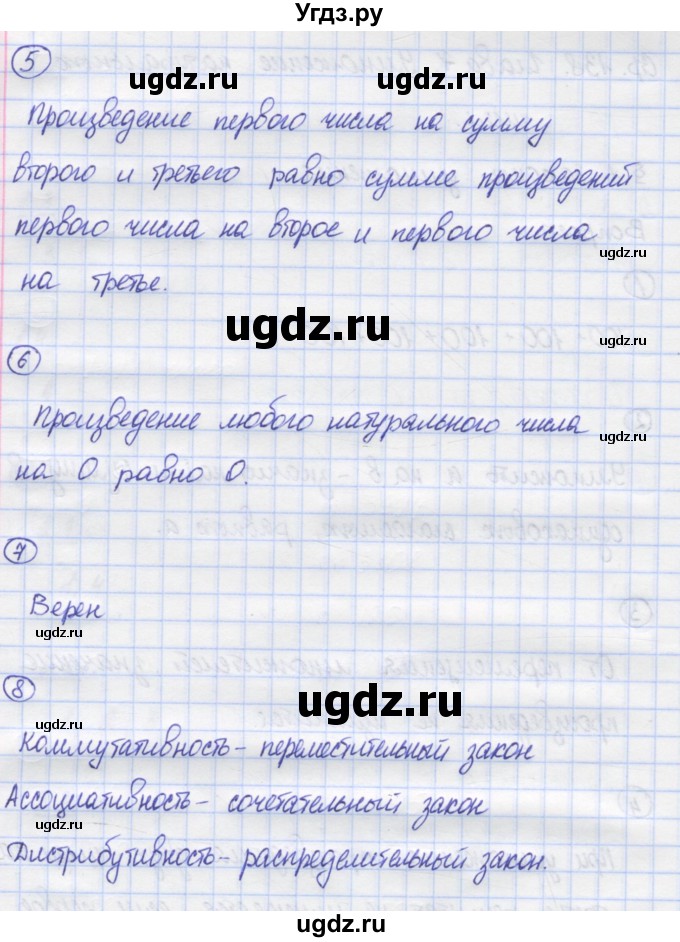 Угдз.ру
5
ugdz.ru ugdz.ru
Произведение первого числа на сумму
второго и третьего равно сумме произведений
первого числа на второе и первого числа
ugdz.ru
на третье.
ugdz.ru
6
Произведение любого натурального числа
ugdz.ru
на 0 равно 0.
7
Верен
ugdz.ru
8
ugdz.ru
ugdz.ru
Коммутативность – переместительный закон
Ассоциативность – сочетательный закон
ugdz.ru
Дистрибутивность – распределительный закон.
ugdz.ru